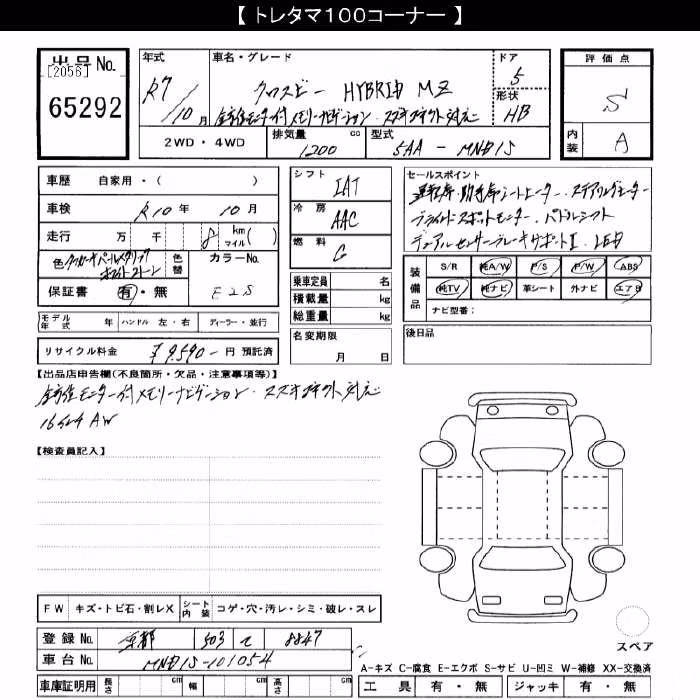 【トレタマ100コーナー】
出品No.
[2056]
65292
年式
R7/10月
車名・グレード
クロスビー HYBRID MZ
全方位モニター付メモリーナビゲーション・スズキコネクト対応
ドア
5
形状
HB
評価点
S
内装
A
2WD・4WD
排気量 1200 cc
型式 5AA-MND1S
車歴 自家用・( )
車検 R10年 10月
走行 万 千 8 km マイル( )
色
ホワイト2トーン
色替
カラーNo.
E2S
保証書 有・無
シフト IAT
冷房 AAC
燃料 G
乗車定員 名
積載量 kg
総重量 kg
名変期限
月 日
セールスポイント
運転席・助手席シートヒーター・ステアリングヒーター
ブラインドスポットモニター・パドルシフト
デュアルセンサーブレーキサポートⅡ・LED
装備品
S/R 純A/W P/S P/W ABS
純TV 純ナビ 革シート 外ナビ エアB
ナビ型番:
モデル年式 年 ハンドル 左・右 ディーラー・並行
リサイクル料金 ¥9,590-円 預託済
後日品
【出品店申告欄(不良箇所・欠品・注意事項等)】
全方位モニター付メモリーナビゲーション・スズキコネクト対応
16インチAW
【検査員記入】
FW キズ・トビ石・割レX シート内装 コゲ・穴・汚レ・シミ・破レ・スレ
登録No. 京都 503 て 8847
車台No. MND1S-101054
車庫証明用 長さ cm 幅 cm 高さ cm
スペア
A-キズ C-腐食 E-エクボ S-サビ U-凹ミ W-補修 XX-交換済
工具 有・無 ジャッキ 有・無